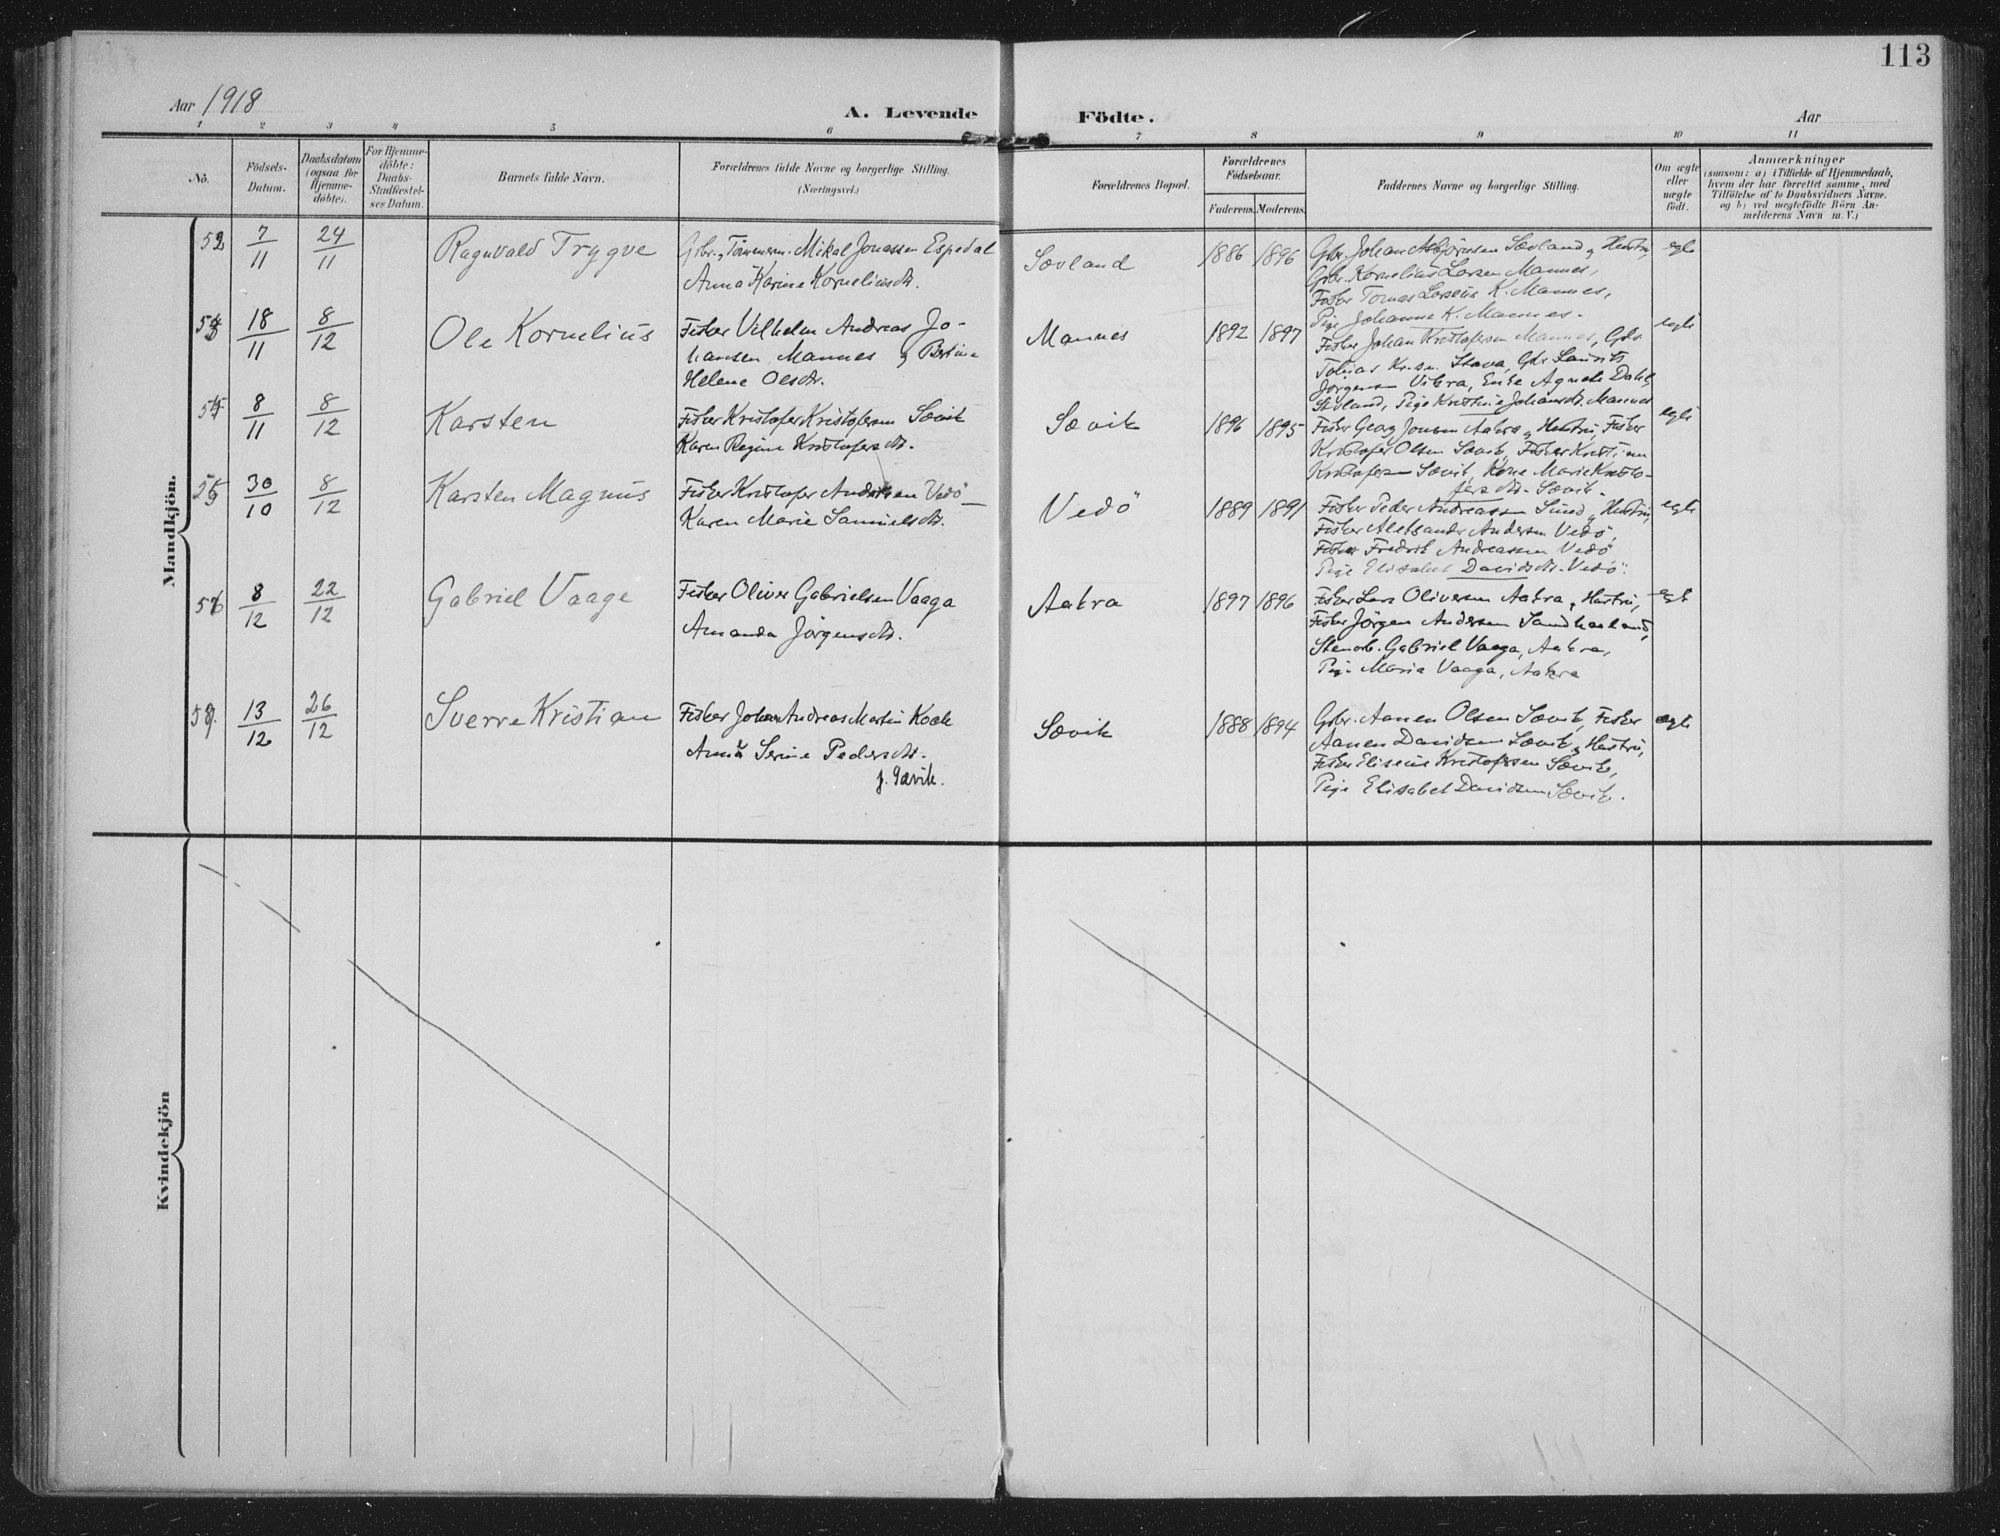 113
Aar 1918
A. Levende
Födte.
Aar
1 2 3 4 5 6 7 8 9 10 11
No.
Födsels-
Datum.
Daabsdatum
(ogsaa for
Hjemme-
döbte).
For Hjemme-
döbte:
Daabs-
Stadfæstel-
ses Datum.
Barnets fulde Navn.
Forældrenes fulde Navne og borgerlige Stilling.
(Næringsvei.)
Forældrenes Bopæl.
Forældrenes
Födselsaar.
Faderens.
Moderens.
Faddernes Navne og borgerlige Stilling.
Om ægte
eller
uægte
födt.
Anmærkninger
(saasom: a) i Tilfælde af Hjemmedaab,
hvem der har forrettet samme, med
Tilföielse af to Daabsvidners Navne.
og b) ved uægtefödte Börn An-
melderens Navn m. V.)
Mandkjön.
7/11 24/11 Ragnvald Trygve
Mikal Jonassen Espedal
Anna Karine Korneliusdtr.
Sævland 1886 1896
Gbr. Johan Asbjörnsen Sævland og Hustru,
Gbr. Kornelius Larsen Mannes,
Fisker Tomas K. Mannes,
Pige Johanne K. Mannes.
egte
18/11 8/12 Ole Kornelius
Fisker Vilhelm Andreas Jo-
hansen Mannes og Bertine
Helene Olesdtr.
Mannes 1892 1897
Fisker Johan Kristofersen Mannes, Gbr.
Tobias Stava, Gbr. Laurits
Jörgensen Vikra, Enke Agnete Dahl,
Sævland, Pige Johansdtr. Mannes
egte
8/11 8/12 Karsten
Fisker Kristofer Kristofersen Sævik
Karen Regine Kristofersdtr.
Sævik 1896 1895
Fisker Georg Jonsen Aakra og Hustru, Fisker
Kristofer Olsen Sævik, Fisker Kristian
Kristofersen Sævik, Marie Kristo-
fersdtr. Sævik.
egte
30/10 8/12 Karsten Magnus
Fisker Kristofer Andersen Vedö
Karen Marie Samuelsdtr.
Vedö 1889 1891
Fisker Peder Andreassen Sund og Hustru,
Fisker Aleksander Andersen Vedö,
Fisker Fredrik Andreassen Vedö
Pige Elisabet Davidsdtr. Vedö.
egte
8/12 22/12 Gabriel Vaage
Fisker Oliver Gabrielsen Vaaga
Amanda Jörgensdtr.
Aakra 1897 1896
Fisker Lars Oliversen Aakra og Hustru,
Fisker Jörgen Andersen Sandhaaland,
Gabriel Vaaga, Aakra,
Pige Maria Vaaga, Aakra
egte
13/12 26/12 Sverre Kristian
Fisker Johan Andreas Martin Kock
Anna Serine Pedersdtr.
f. Sævik.
Sævik 1888 1894
Gbr. Aanen Olsen Sævik, Fisker
Aanen Davidsen Sævik og Hustru,
Fisker Eliseus Kristofersen Sævik,
Pige Elisabet Davidsen Sævik.
ægte
Kvindekjön